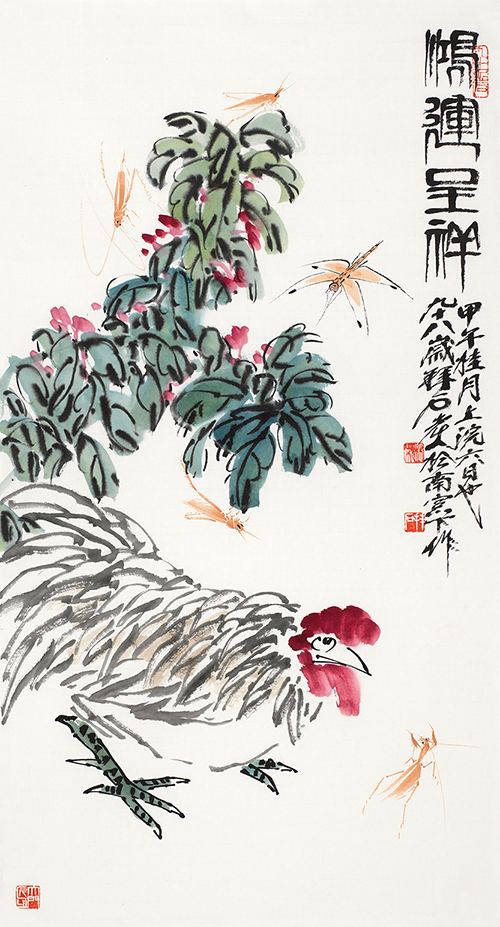 鴻運呈祥
甲午桂月上浣六日也
九十八歲拜石老人於南窗下作